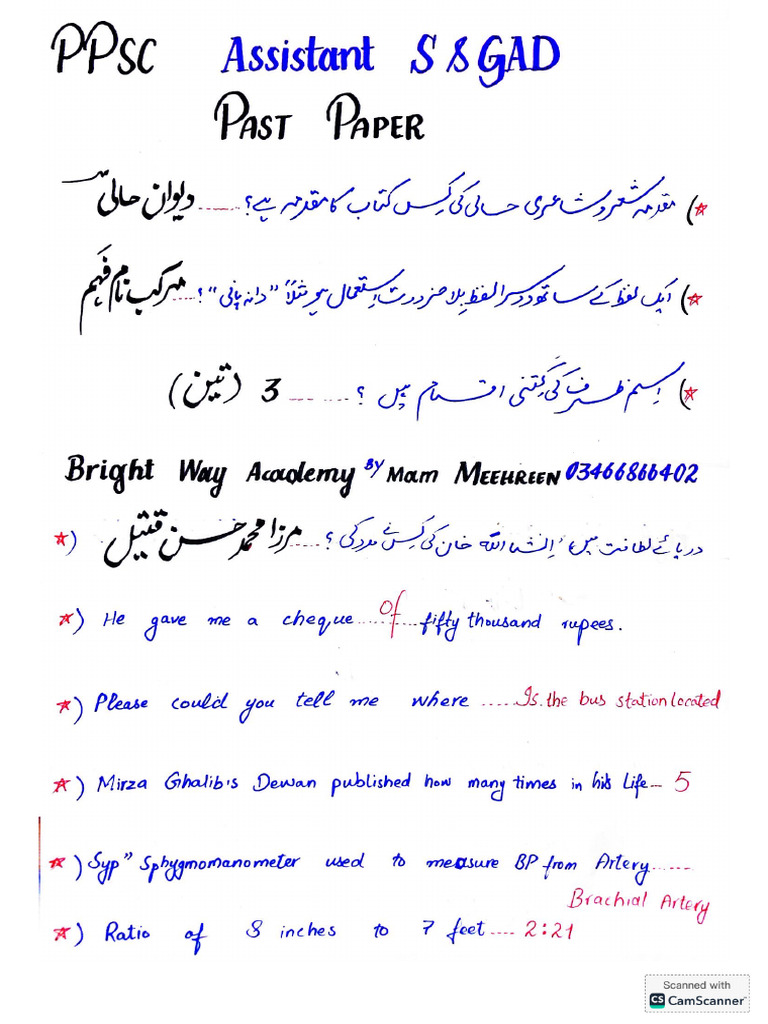 PPSC Assistant S&GAD
PAST PAPER
☆) مقدمہ شعر و شاعری حالی کی کِس کتاب کا مقدمہ ہے؟ ...... دیوان حالی
☆) ایک لفظ کے ساتھ دوسرا لفظ بلا ضرورت استعمال ہو مثلاً "دانہ پانی"؟ .... مرکب نام فہم
☆) اِسم ظرف کی کِتنی اقسام ہیں ؟ ........ 3 (تین)
Bright Way Academy BY Mam MEEHREEN 03466866402
☆) دریائے لطافت میں، اِنشا اللہ خان کی کِس نے مدد کی ؟ ..... مرزا محمد حسن قتیل
☆) He gave me a cheque......of......fifty thousand rupees.
☆) Please could you tell me where .....Is the bus station located
☆) Mirza Ghalib's Dewan published how many times in his Life... 5
☆) Syp" Sphygmomanometer used to measure BP from Artery......
Brachial Artery
☆) Ratio of 8 inches to 7 feet.... 2:21
Scanned with
CS CamScanner